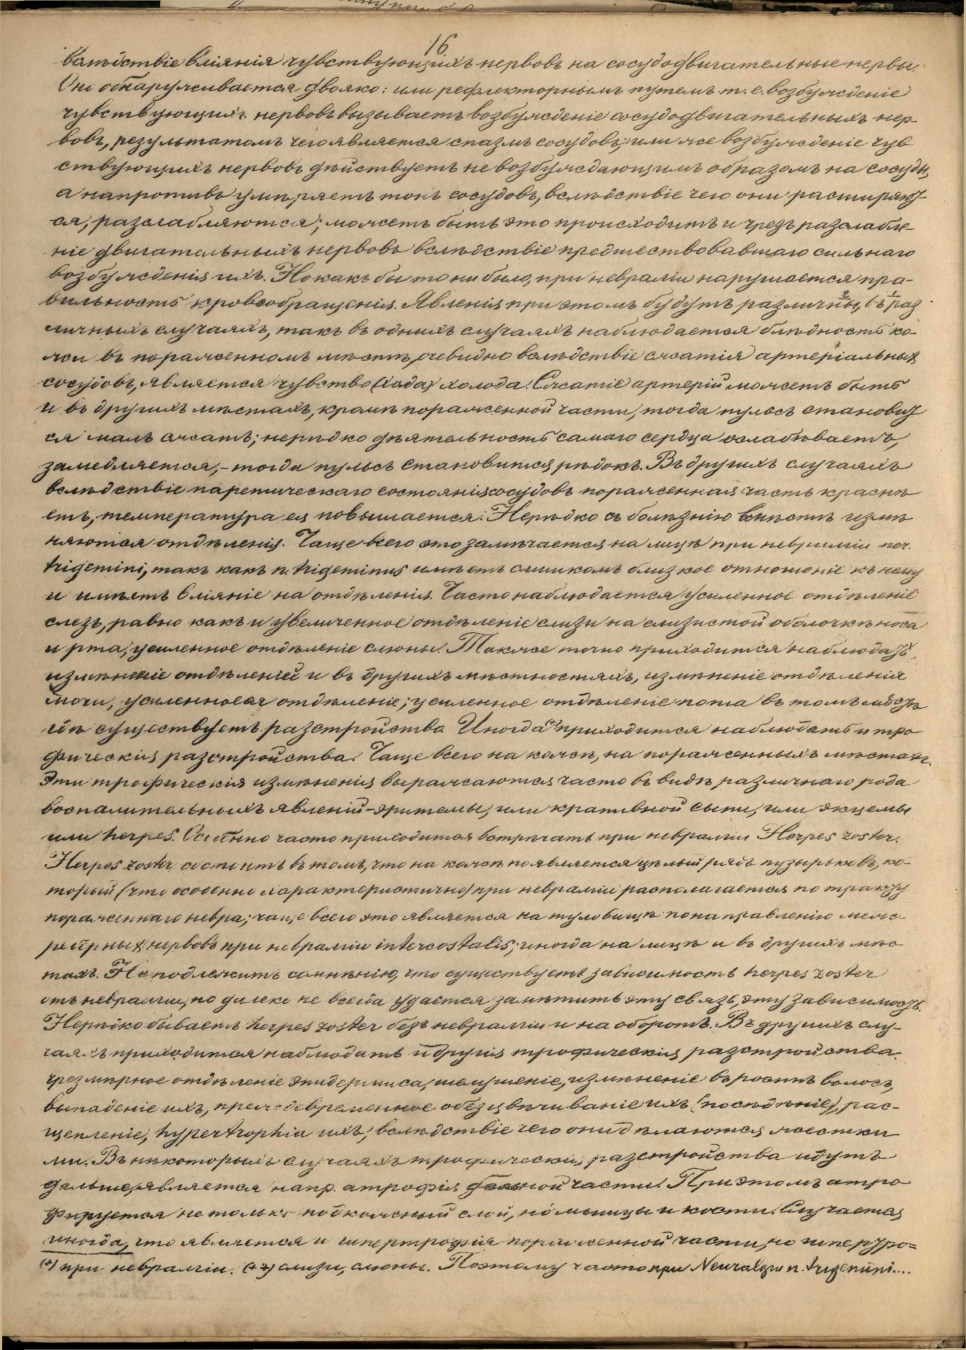 16
вслѣдствіе вліянія чувствующихъ нервовъ на сосудодвигательные нервы.
Они обнаруживается двояко: или рефлекторнымъ путемъ т. е. возбужденіе
чувствующихъ нервовъ вызываетъ возбужденіе сосудодвигательныхъ нер-
вовъ, результатомъ чего является спазмъ сосудовъ; или же возбужденіе чув
ствующихъ нервовъ дѣйствуетъ не возбуждающимъ образомъ на сосуды,
а напротивъ умѣряетъ тонъ сосудовъ, вслѣдствіе чего они расширяют
ся, разслабляются; можетъ быть это происходитъ и чрезъ разслабле
ніе двигательныхъ нервовъ вслѣдствіе предшествовавшаго сильнаго
возбужденія ихъ. Но какъ бы то ни было, при невралгіи нарушается пра-
вильность кровообращенія. Явленія при этомъ будутъ различны, въ раз
личныхъ случаяхъ, такъ въ однихъ случаяхъ наблюдается блѣдность ко-
жи въ пораженномъ мѣстѣ, очевидно вслѣдствіе сжатія артеріальныхъ
сосудовъ, является чувство холода. Сжатіе артерій можетъ быть
и въ другихъ мѣстахъ, кромѣ пораженной части, тогда пульсъ становит
ся малъ сжатъ; нерѣдко дѣятельность самаго сердца ослабѣваетъ,
замедляется, - тогда пульсъ становится рѣдокъ. Въ другихъ случаяхъ
вслѣдствіе паретическаго состоянія сосудовъ пораженная часть краснѣ
етъ, температура ея повышается. Нерѣдко съ болѣзнію вмѣстѣ измѣ
няются отдѣленія. Чаще всего это замѣчается на лицѣ при невралгіи
trigemini, такъ какъ n. trigeminus имѣетъ слишкомъ близкое отношеніе къ нему
и имѣетъ вліяніе на отдѣленія. Часто наблюдается усиленное отдѣленіе
слезъ, равно какъ и увеличенное отдѣленіе слизи на слизистой оболочкѣ носа
и рта; усиленное отдѣленіе слюны. Также точно приходится наблюдать
измѣненіе отдѣленій и въ другихъ мѣстностяхъ, измѣненіе отдѣленія
мочи, усиленное ея отдѣленіе; усиленное отдѣленіе пота въ томъ мѣстѣ
гдѣ существуетъ разстройство. Иногда приходится наблюдать и тро
фическія разстройства. Чаще всего на кожѣ, на пораженныхъ мѣстахъ.
Эти трофическія измѣненія выражаются часто въ видѣ различнаго рода
воспалительныхъ явленій - эритемы, или крапивной сыпи, или экземы
или herpes. Особенно часто приходится встрѣчать при невралгіи Herpes zoster.
Herpes zoster состоитъ въ томъ, что на кожѣ появляется цѣлый рядъ пузырьковъ, ко-
торый (что особенно характеристично) при невралгіи располагается по тракту
пораженнаго нерва; чаще всего это является на туловищѣ по направленію меж-
реберныхъ нервовъ при невралгіи intercostalis; иногда на лицѣ и въ другихъ мѣс-
тахъ. Не подлежитъ сомнѣнію, что существуетъ зависимость herpes zoster
отъ невралгіи, но далеко не всегда удается замѣтить эту связь, эту зависимость.
Нерѣдко бываетъ herpes zoster безъ невралгіи и на оборотъ. Въ другихъ слу-
чаяхъ приходится наблюдать и другія трофическія разстройства.
чрезмѣрное отдѣленіе эпидермиса, шелушеніе, измѣненіе въ ростѣ волосъ,
выпаденіе ихъ, преждевременное обезцвѣчиваніе ихъ (посѣдѣніе), рас-
щепленіе, hypertrophia ихъ, вслѣдствіе чего они дѣлаются жестки
ми. Въ нѣкоторыхъ случаяхъ трофическія разстройства идутъ
дальше, является напр. атрофія больной части. При этомъ атро
фируется не только подкожный слой, но мышцы и кости. Случается
иногда, что является и гипертрофія пораженной части, но гипертро=
(+) при невралгіи. (++) слизи, слюны. Поэтому часто при Neuralgia n. trigemini....